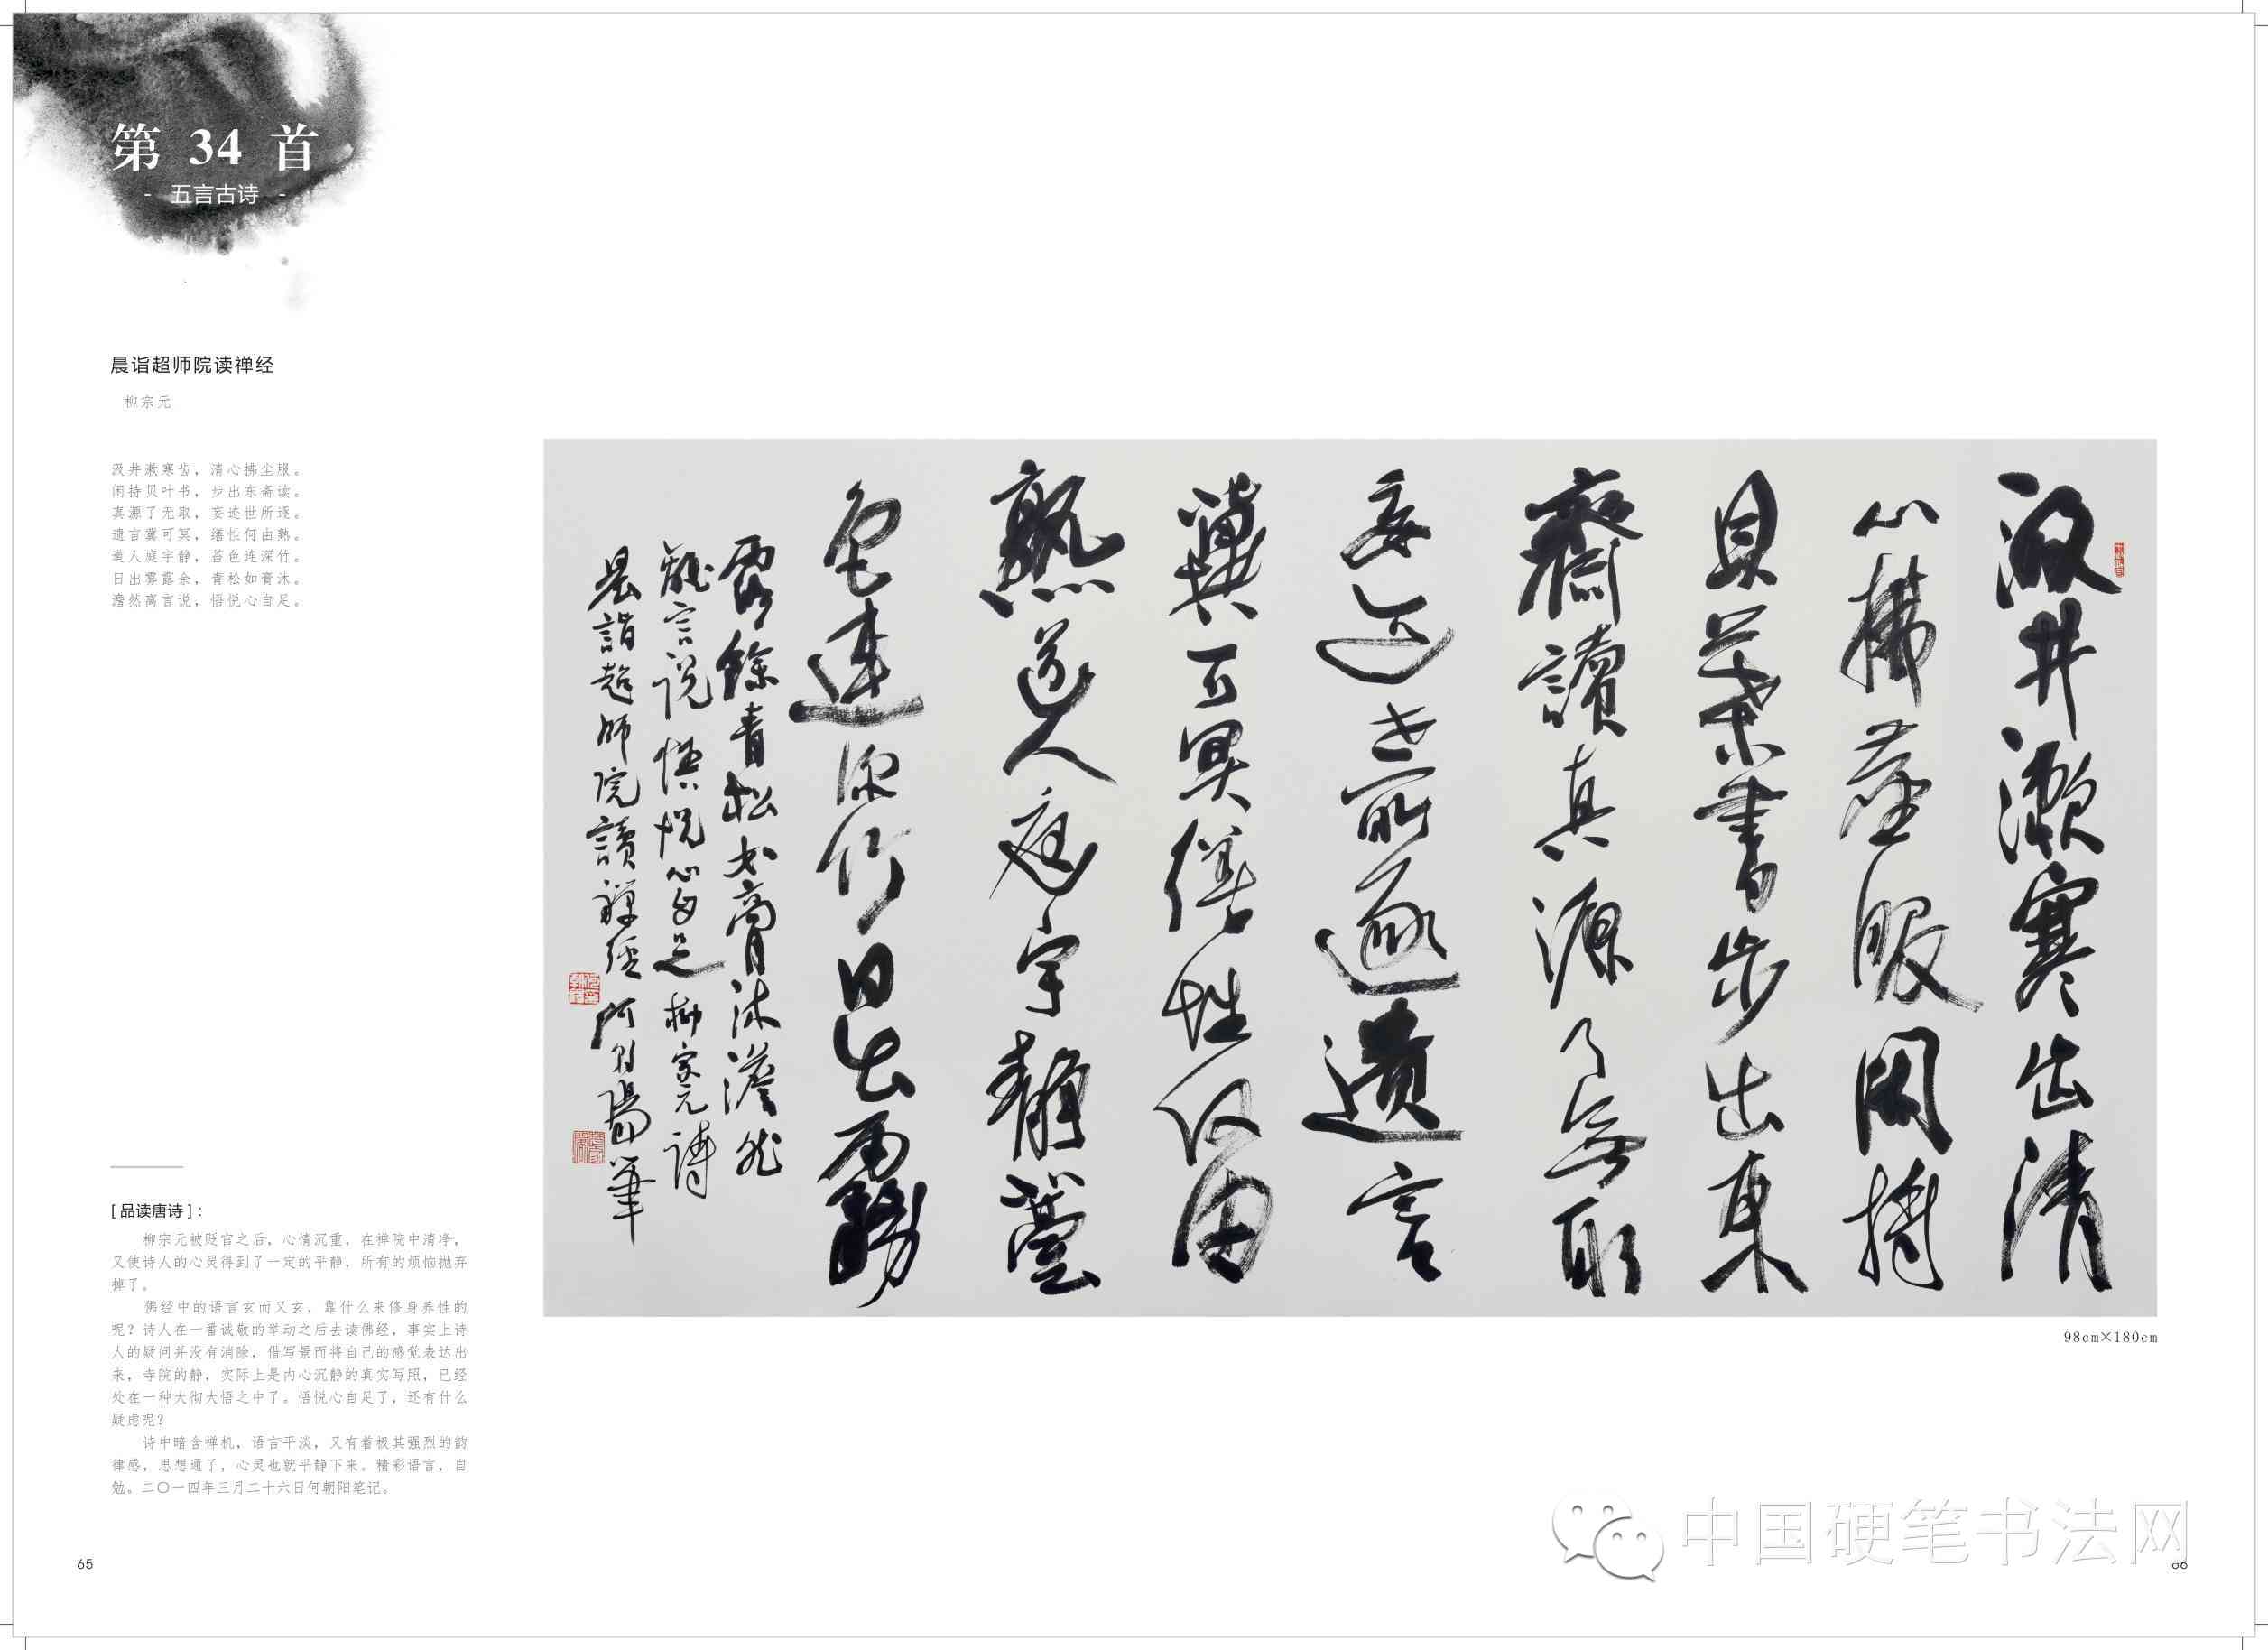 第 34 首
- 五言古诗 -
晨诣超师院读禅经
柳宗元
汲井漱寒齿，清心拂尘服。
闲持贝叶书，步出东斋读。
真源了无取，妄迹世所逐。
遗言冀可冥，缮性何由熟。
道人庭宇静，苔色连深竹。
日出雾露余，青松如膏沐。
澹然离言说，悟悦心自足。
[ 品读唐诗 ]：
柳宗元被贬官之后，心情沉重，在禅院中清净，
又使诗人的心灵得到了一定的平静，所有的烦恼抛弃
掉了。
佛经中的语言玄而又玄，靠什么来修身养性的
呢？诗人在一番诚敬的举动之后去读佛经，事实上诗
人的疑问并没有消除，借写景而将自己的感觉表达出
来，寺院的静，实际上是内心沉静的真实写照，已经
处在一种大彻大悟之中了。悟悦心自足了，还有什么
疑虑呢？
诗中暗含禅机，语言平淡，又有着极其强烈的韵
律感，思想通了，心灵也就平静下来。精彩语言，自
勉。二〇一四年三月二十六日何朝阳笔记。
65
汲井漱寒齿清
心拂尘服闲持
贝叶書步出东
齋讀真源了無取
妄迹世所逐遺言
冀可冥缮性何由
熟道人庭宇静苔
色連深竹日出雾
露餘青松如膏沐澹然
離言说悟悦心自足柳宗元詩
晨詣超師院讀禅經何朝陽筆
98cm×180cm
中国硬笔书法网
66